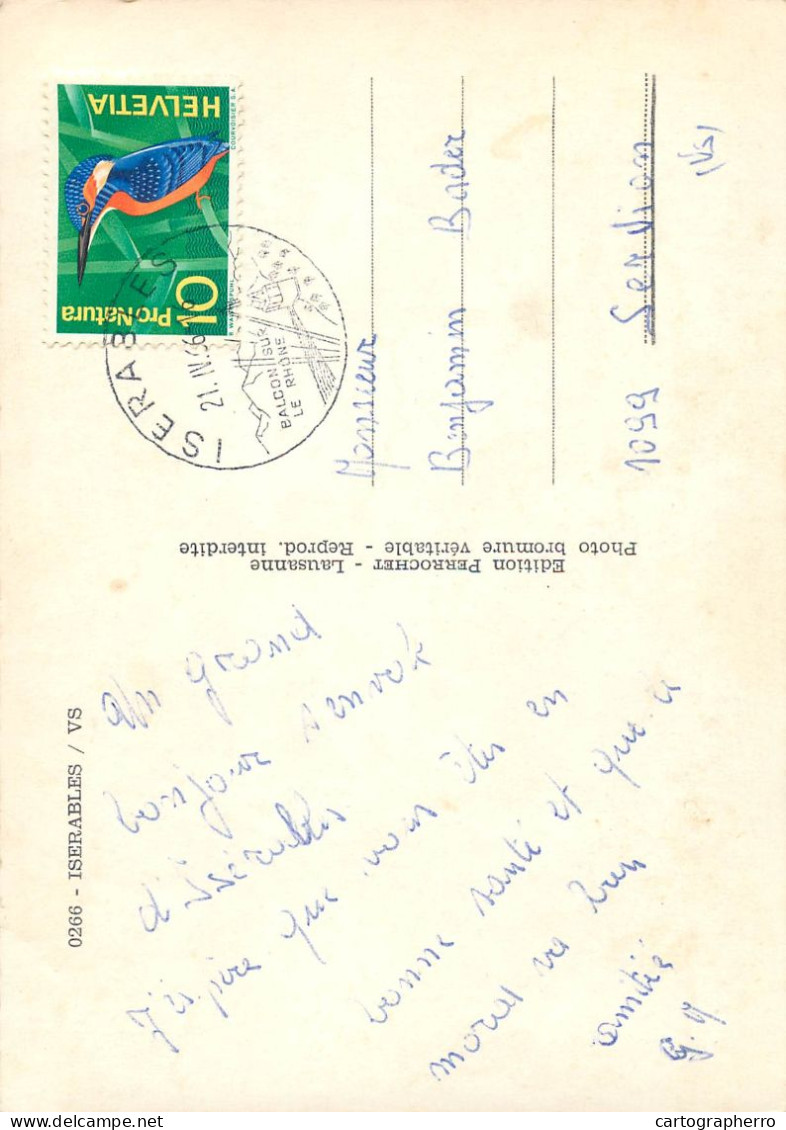 0266 - ISERABLES / VS
Un grand
bonjour s'envole
d'Isérables
J'espère que vous êtes en
bonne santé et que le
moral va bien
amitié
Edition PERROCHET - Lausanne
Photo bromure véritable - Reprod. interdite
HELVETIA
Pro Natura
10
COURVOISIER S.A.
ISERABLES
21.IV.
BALCON SUR
LE RHONE
Monsieur
Benjamin Bader
1099 Servion
(VS)
cartographerro